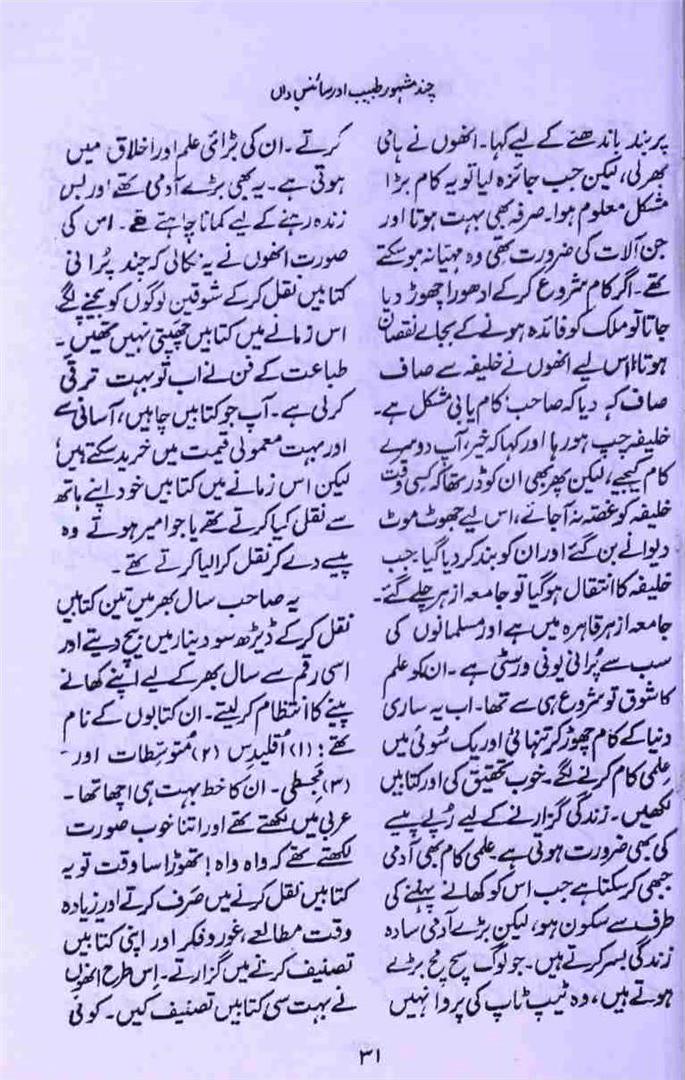 چند مشہور طبیب اور سائنس داں
پر بند باندھنے کے لیے کہا۔ انھوں نے ہامی
بھر لی، لیکن جب جائزہ لیا تو یہ کام بڑا
مشکل معلوم ہوا۔ صرفہ بھی بہت ہوتا اور
جن آلات کی ضرورت تھی وہ مہیا نہ ہو سکتے
تھے۔ اگر کام شروع کر کے ادھورا چھوڑ دیا
جاتا تو ملک کو فائدہ ہونے کے بجائے نقصان
ہوتا، اس لیے انھوں نے خلیفہ سے صاف
صاف کہہ دیا کہ صاحب کام یابی مشکل ہے۔
خلیفہ چپ ہو رہا اور کہا کہ خیر، آپ دوسرے
کام کیجیے، لیکن پھر بھی ان کو ڈر تھا کہ کسی وقت
خلیفہ کو غصّہ نہ آجائے، اس لیے جھوٹ موٹ
دیوانے بن گئے اور ان کو بند کر دیا گیا۔ جب
خلیفہ کا انتقال ہو گیا تو جامعہ ازہر چلے گئے۔
جامعہ ازہر قاہرہ میں ہے اور مسلمانوں کی
سب سے پُرانی یونی ورسٹی ہے۔ ان کو علم
کا شوق تو شروع ہی سے تھا۔ اب یہ ساری
دنیا کے کام چھوڑ کر تنہائی اور یک سُوئی میں
علمی کام کرنے لگے۔ خوب تحقیق کی اور کتابیں
لکھیں۔ زندگی گزارنے کے لیے رُپے پیسے
کی بھی ضرورت ہوتی ہے۔ علمی کام بھی آدمی
جبھی کر سکتا ہے جب اس کو کھانے پہننے کی
طرف سے سکون ہو، لیکن بڑے آدمی سادہ
زندگی بسر کرتے ہیں۔ جو لوگ سچ مچ بڑے
ہوتے ہیں، وہ ٹیپ ٹاپ کی پروا نہیں
کرتے۔ ان کی بڑائی علم اور اخلاق میں
ہوتی ہے۔ یہ بھی بڑے آدمی تھے اور بس
زندہ رہنے کے لیے کمانا چاہتے تھے۔ اس کی
صورت انھوں نے یہ نکالی کہ چند پُرانی
کتابیں نقل کر کے شوقین لوگوں کو بیچنے لگے
اس زمانے میں کتابیں چھپتی نہیں تھیں۔
طباعت کے فن نے اب تو بہت ترقی
کر لی ہے۔ آپ جو کتابیں چاہیں، آسانی سے
اور بہت معمولی قیمت میں خرید سکتے ہیں،
لیکن اس زمانے میں کتابیں خود اپنے ہاتھ
سے نقل کیا کرتے تھے یا جو امیر ہوتے وہ
پیسے دے کر نقل کرا لیا کرتے تھے۔
یہ صاحب سال بھر میں تین کتابیں
نقل کر کے ڈیڑھ سو دینار میں بیچ دیتے اور
اسی رقم سے سال بھر کے لیے اپنے کھانے
پینے کا انتظام کر لیتے۔ ان کتابوں کے نام
تھے: (۱) اُقلیدس (۲) مُتوسِّطات اور۔
(۳) مَجسطی۔ ان کا خط بہت ہی اچھا تھا۔
عربی میں لکھتے تھے اور اتنا خوب صورت
لکھتے تھے کہ واہ واہ! تھوڑا سا وقت تو یہ
کتابیں نقل کرنے میں صَرف کرتے اور زیادہ
وقت مطالعے، غور و فکر اور اپنی کتابیں
تصنیف کرنے میں گزارتے۔ اِس طرح انھوں
نے بہت سی کتابیں تصنیف کیں۔ کوئی
۳۱